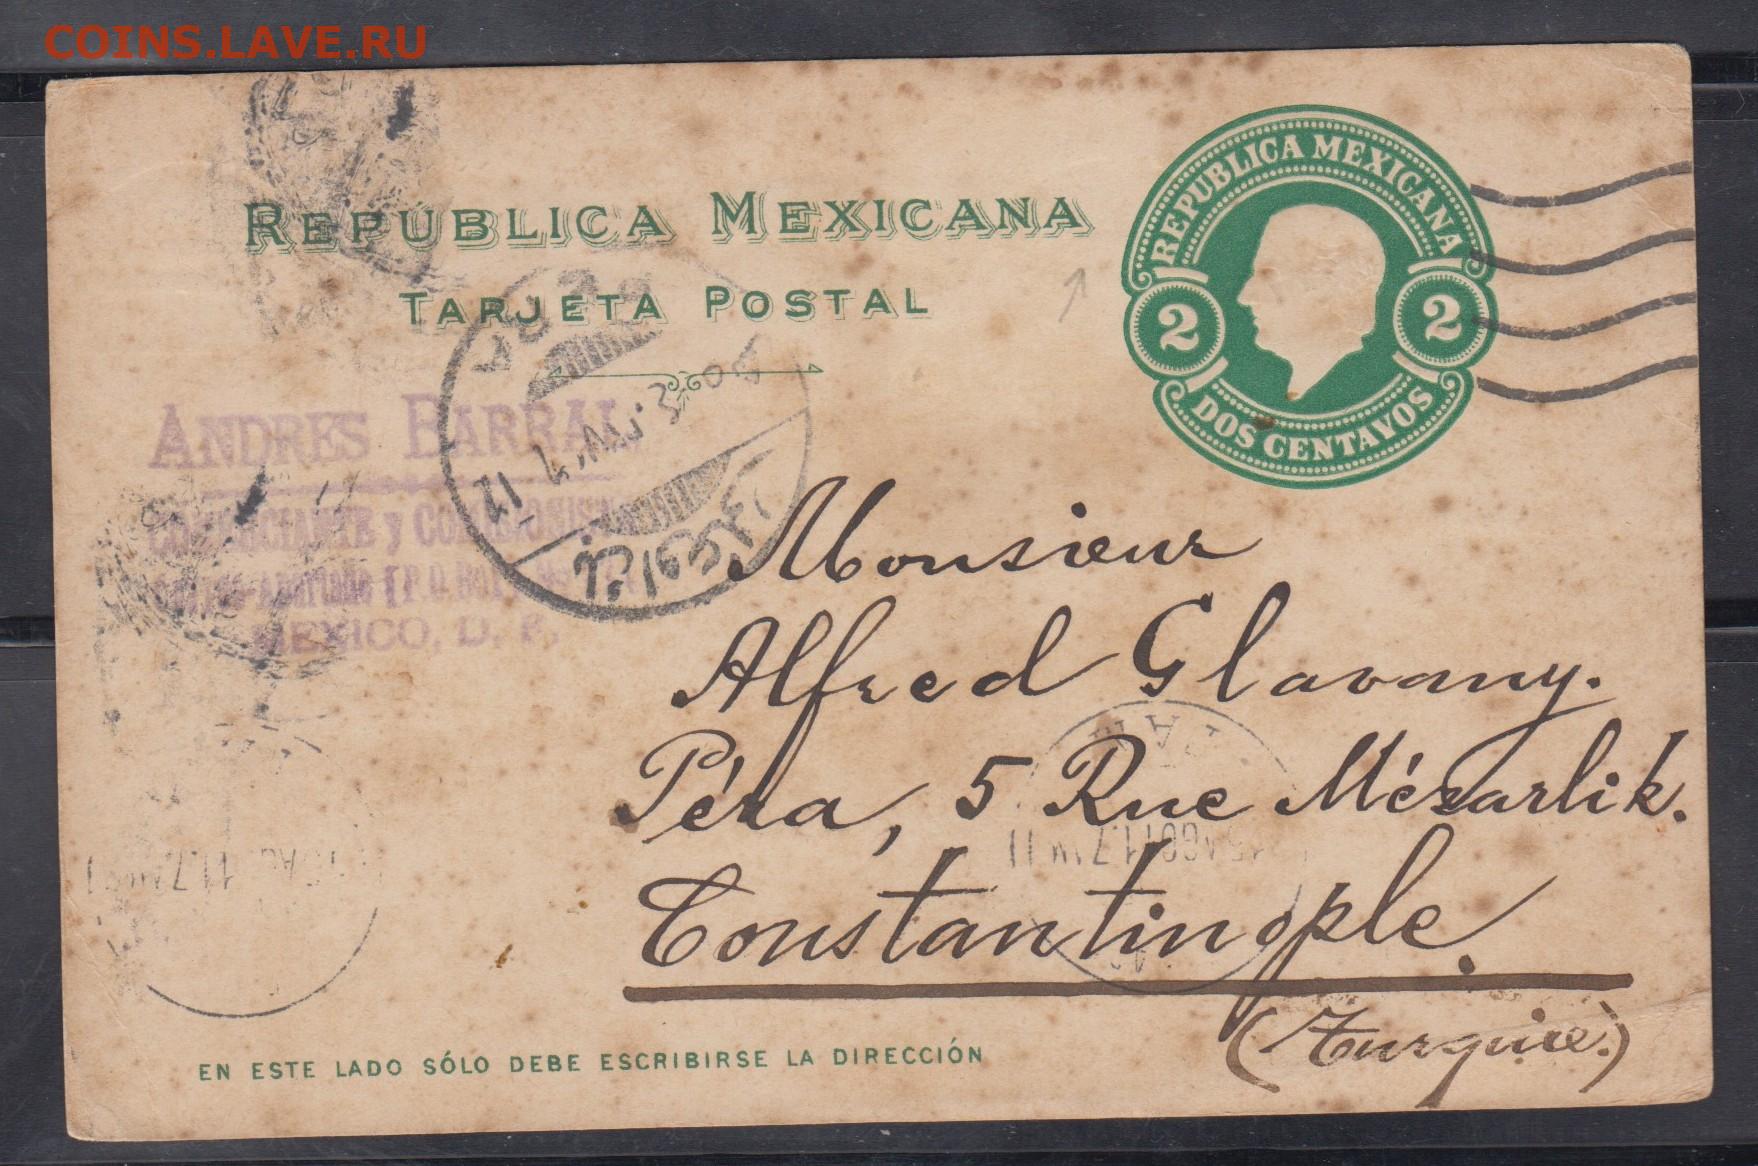 COINS.LAVE.RU
REPÚBLICA MEXICANA
TARJETA POSTAL
REPUBLICA MEXICANA
2 2
DOS CENTAVOS
ANDRES BARRAL
COMERCIANTE y COMISIONISTA
MEXICO, D. F.
Monsieur
Alfred Glavany.
Péra, 5 Rue Mézarlik.
Constantinople.
(Turquie.)
EN ESTE LADO SÓLO DEBE ESCRIBIRSE LA DIRECCIÓN